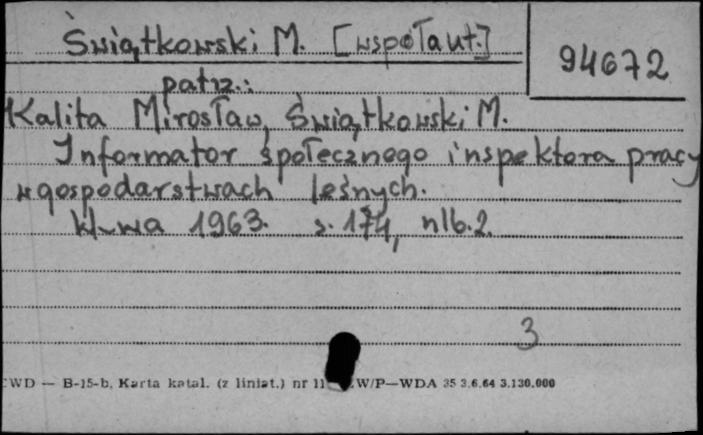 Świątkowski M. [współaut.]
94672
patrz:
Kalita Mirosław, Świątkowski M.
Informator społecznego inspektora pracy
w gospodarstwach leśnych.
W-wa 1963. s. 174, nlb. 2.
3
CWD — B-15-b, Karta katal. (z liniat.) nr 11 W/P—WDA 35 3.6.64 3.130.000